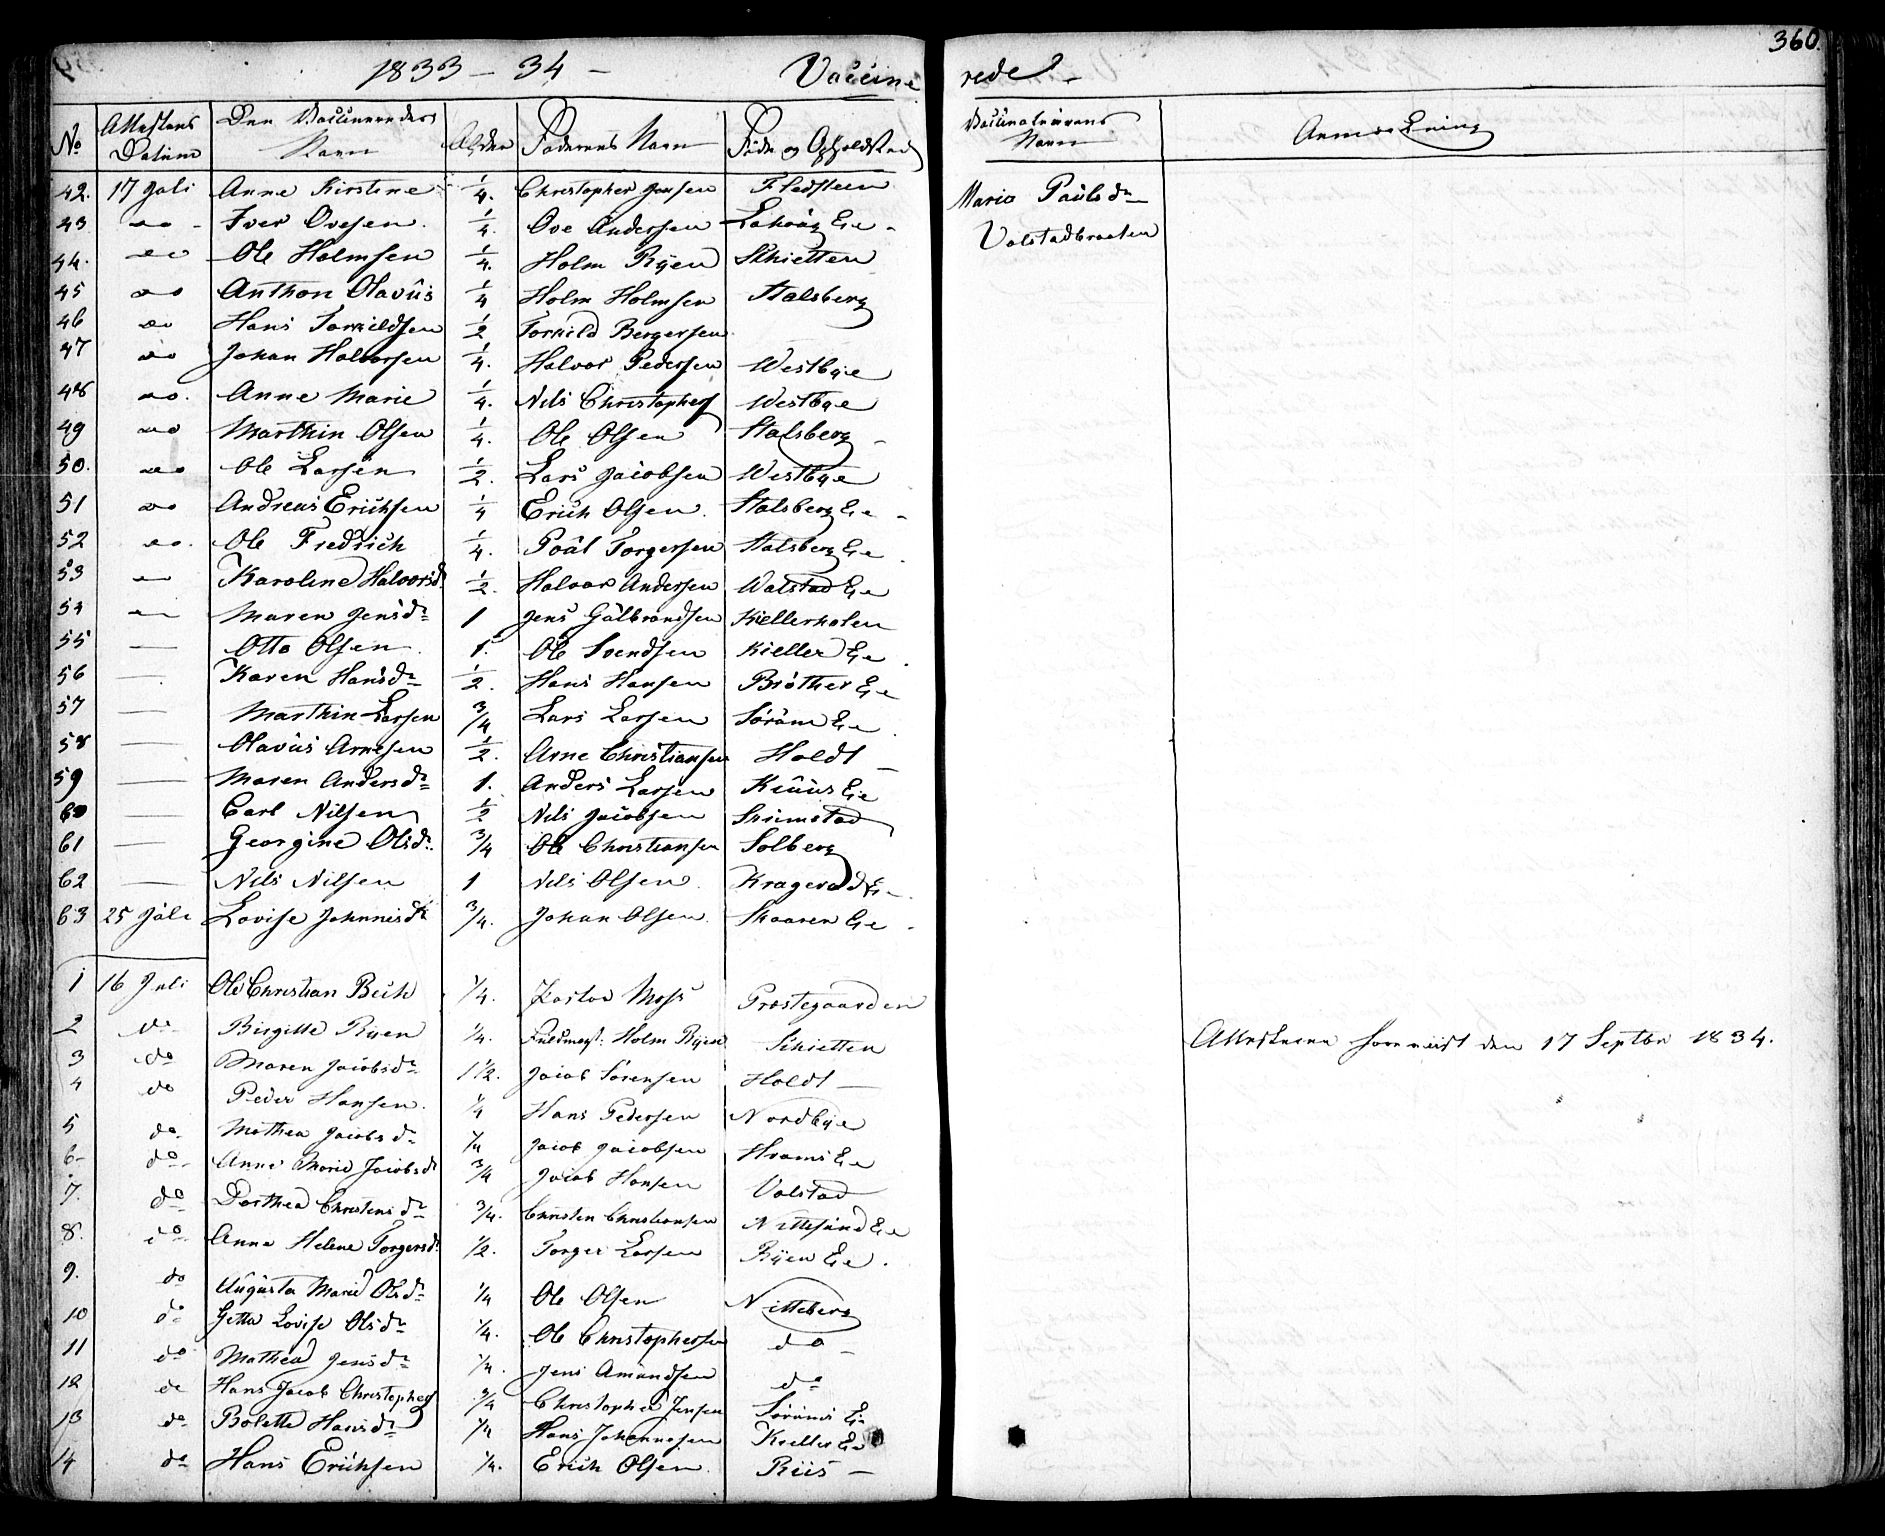 360.
1833 - 34 - Vaccinerede.
No Attestens Datum Den Vaccineredes Navn Alder Faderens Navn Føde og Opholdsted Vaccinateurens Navn Anmærkning
42. 17 Juli Anne Kirstine 1/4. Christopher Jensen Fladsteen Marie Paulsdr
43 do - Iver Ovesen. 1/4. Ove Andersen Lakoug Eie - Valstadbraaten
44. do Ole Holmsen 1/4. Holm Ryen Schietten
45 do Anthon Olavus 1/4 Holm Holmsen Stalsberg
46 do Hans Torkildsen 1/2 Torkild Bergersen
47 do Johan Halvorsen 1/4. Halvor Pedersen Westbye
48 do. Anne Marie 1/4. Nils Christophers Westbye
49 do Marthin Olsen 1/4. Ole Olsen Stalsberg -
50. do Ole Larsen 1/2. Lars Jacobsen Westbye
51 do Andreas Erichsen 1/4 Erich Olsen. Stalsberg Eie -
52 do. Ole Fredrich 1/4. Poul Torgersen Stalsberg Eie
53 — Karoline Halvorsd 1/2. Halvor Andersen Walstad Eie
54 — Maren Jensdr 1 Jens Gulbrandsen Kiellerholen
55 — Otto Olsen. 1. Ole Svendsen Kieller Eie.
56 — Karen Hansdr 1/2. Hans Hansen Bråther Eie
57 — Marthin Larsen 3/4 Lars Larsen Sørum Eie.
58 — Olavus Arnesen 1/2. Arne Christiansen Holdt -
59 — Maren Andersdr 1. Anders Larsen Kuus Eie
60 — Carl Nilsen 1/2 Nils Jacobsen
61 — Georgine Olsdr. 3/4 Ole Christiansen Solberg
62 — Nils Nilsen 1 Nils Olsen. Kragerud Eie
63 25 Juli Lovise Johannesdr 3/4. Johan Olsen. Skaaren Eie.
1 16 Juli Ole Christian Beck 1/4. Pastor Moss Præstegaarden
2 do Birgitte Ryen 1/4. Fuldmegt: Holm Ryen Schietten Attesterne fremsendt den 17 Septbr 1834.
3 do Maren Jacobsdr 1 1/2. Jacob Sørensen Holdt —
4 do Peder Hansen. 1/4 Hans Pedersen Nordbye
5 do. Mathea Jacobsdr 1/4 Jacob Jacobsen Hvams Eie
6- do- Anne Marie Jacobsdr 3/4 Jacob Hansen Valstad
7. do Dorthea Christensdr 3/4. Christen Christiansen Nittesund Eie
8. do Anne Helene Torgersdr 1/2. Torger Larsen Ryen Eie.
9. do Augusta Marie Olsdr 1/4 Ole Olsen Nitteberg
10 do Getta Lovise Olsdr 1/4. Ole Christophersen do -
11 do Mathea Jensdr 1/4. Jens Amundsen do
12 do Hans Jacob Christophers 3/4 Christopher Jensen Sørums Eie
13 do Bolette Hansdr 1/4 Hans Johannesen Kieller Eie
14 do Hans Erichsen 1/4. Erich Olsen. Riis —